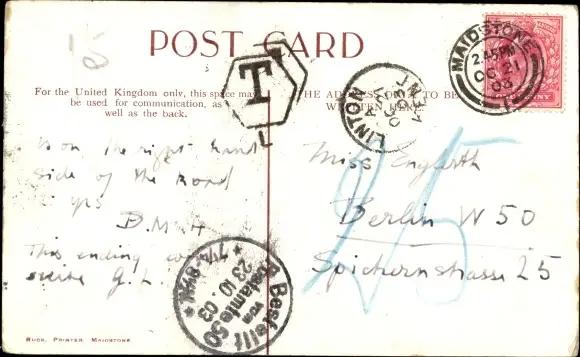 POST CARD
For the United Kingdom only, this space may
be used for communication, as
well as the back.
THE ADDRESS ONLY TO BE
WRITTEN HERE.
T
L
MAIDSTONE
2.45PM
OC 21
03
LINTON
OC 21
PENNY
is on the right hand
side of the road
yrs
B.M.H
This ending
G.L.
Miss Englerth
Berlin W 50
Spichernstrasse 25
25
Bestellt
vom
Postamte 50
23.10.03
BUCK, PRINTER, MAIDSTONE